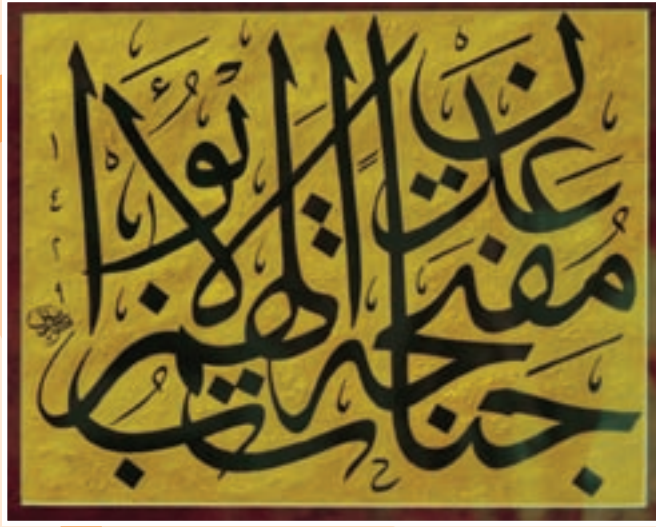 جنات عدن مفتحة لهم الأبواب
١٤٢٩